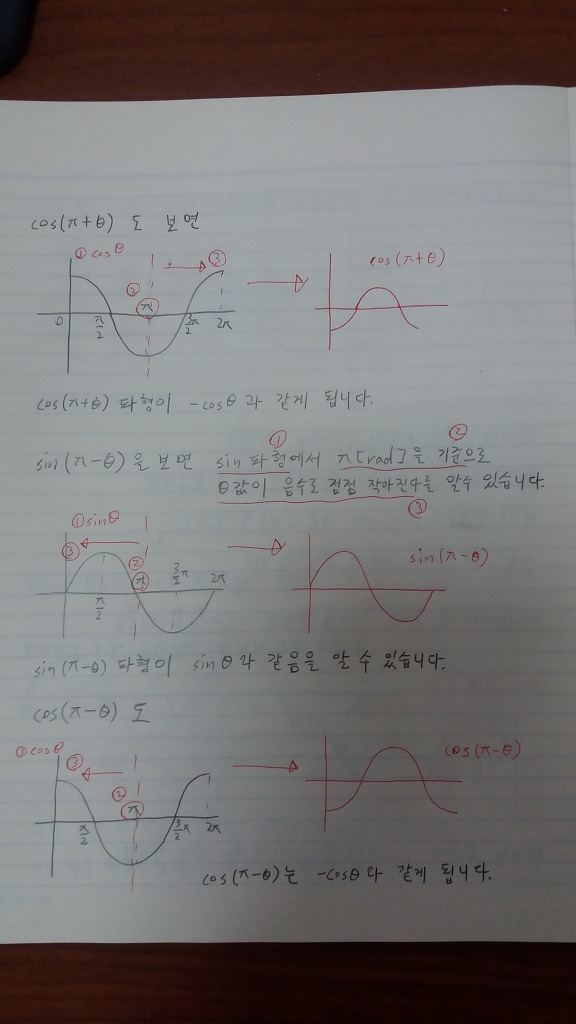 cos(π+θ) 도 보면
① cosθ ③ cos(π+θ)
② π
0 π/2 3/2π 2π
cos(π+θ) 파형이 -cosθ과 같게 됩니다.
① ②
sin(π-θ)을 보면 sin 파형에서 π[rad]을 기준으로
θ값이 음수로 점점 작아진다를 알수 있습니다.
③
① sinθ
③ ② π 3/2π 2π sin(π-θ)
π/2
sin(π-θ) 파형이 sinθ라 같음을 알 수 있습니다.
cos(π-θ) 도
① cosθ ③ cos(π-θ)
② π
π/2 3/2π 2π
cos(π-θ)는 -cosθ라 같게 됩니다.